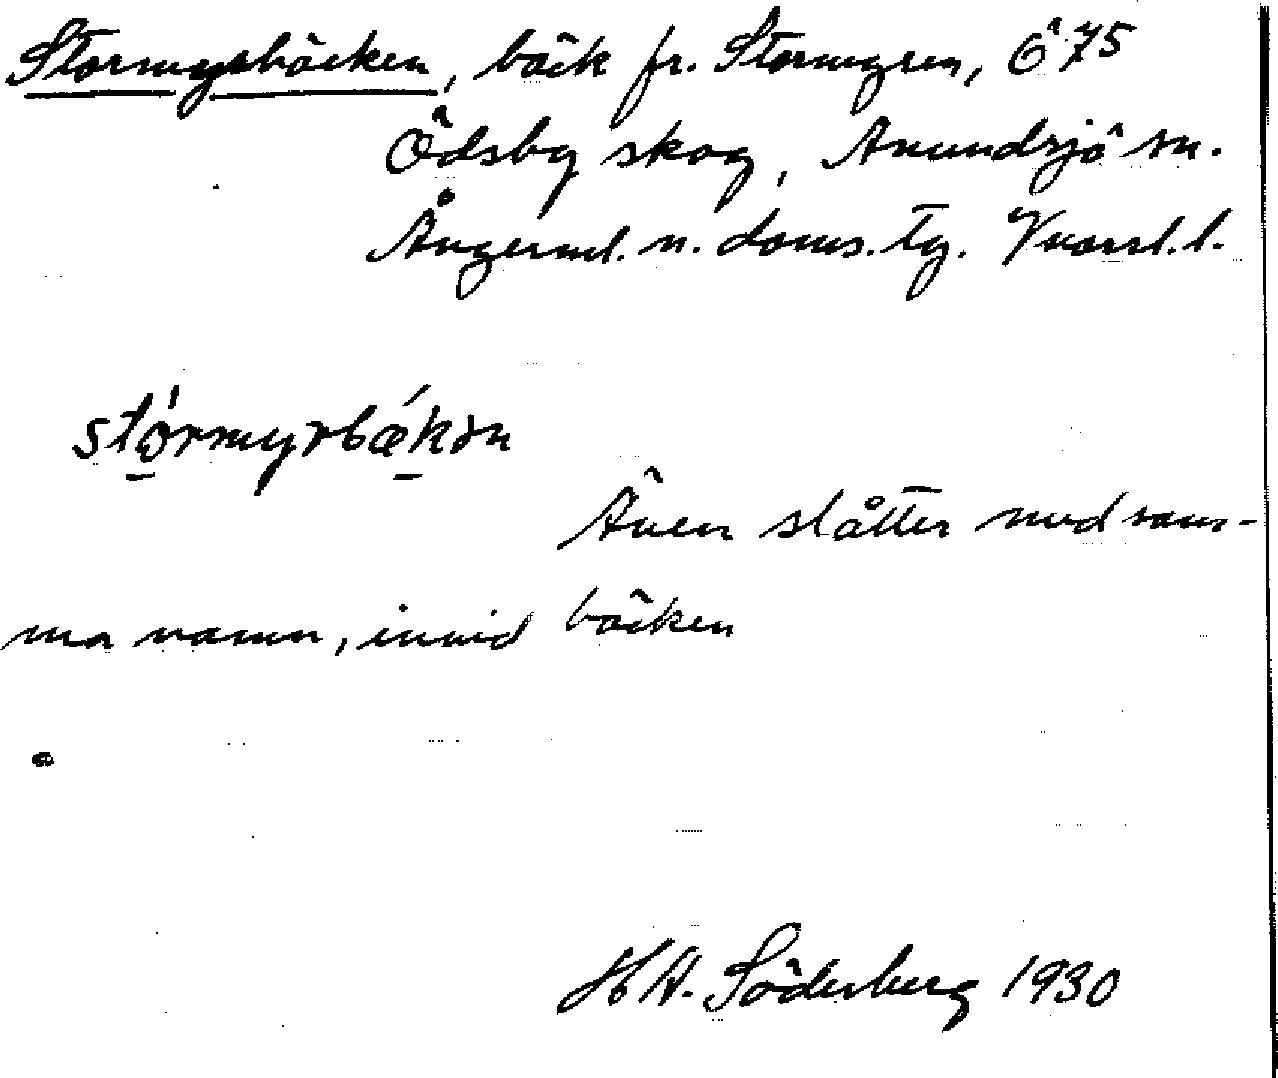 Stormyrbäcken, bäck fr. Stormyren, Ö 75
Ödsby skog, Anundsjö sn.
Ångerml. n. doms. tg. Vnorrl. l.
stórmyrbǽkən
Även slåtter med sam-
ma namn, invid bäcken
H A. Söderberg 1930